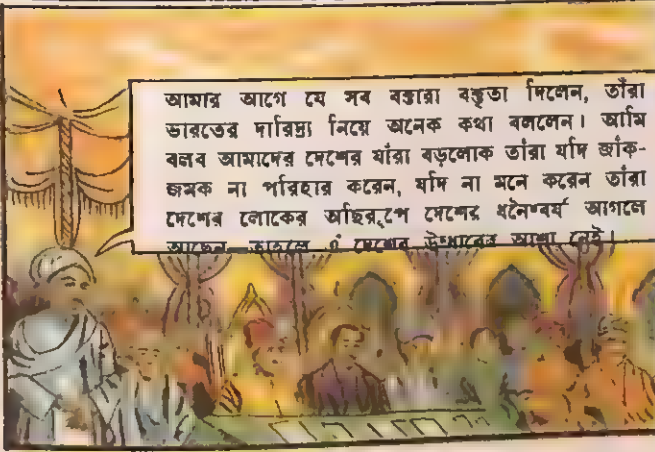 আমার আগে যে সব বক্তারা বক্তৃতা দিলেন, তাঁরা
ভারতের দারিদ্র্য নিয়ে অনেক কথা বললেন। আমি
বলব আমাদের দেশের যাঁরা বড়লোক তাঁরা যদি জাঁক-
জমক না পরিহার করেন, যদি না মনে করেন তাঁরা
দেশের লোকের অছিরূপে দেশের ধনৈশ্বর্য আগলে
আছেন তাহলে এ দেশের উদ্ধারের আশা নেই।